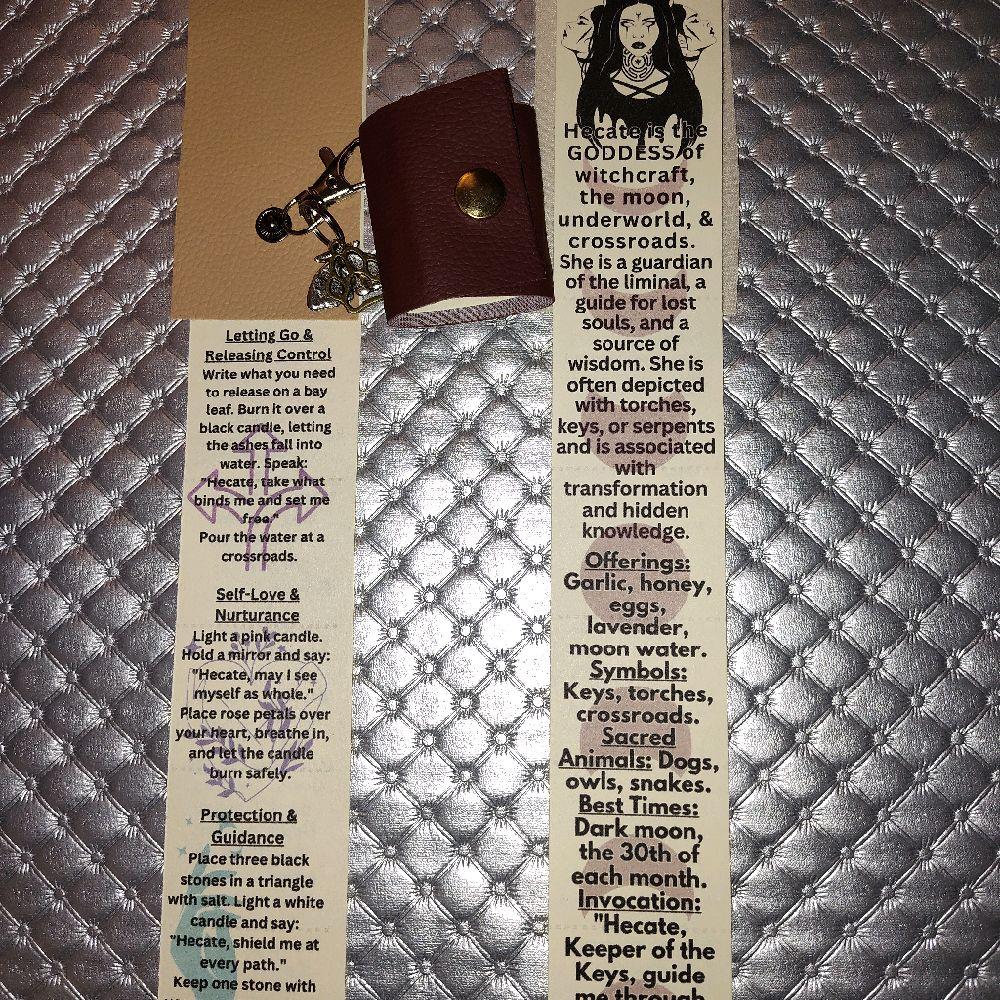 Letting Go &
Releasing Control
Write what you need
to release on a bay
leaf. Burn it over a
black candle, letting
the ashes fall into
water. Speak:
"Hecate, take what
binds me and set me
free."
Pour the water at a
crossroads.
Self-Love &
Nurturance
Light a pink candle.
Hold a mirror and say:
"Hecate, may I see
myself as whole."
Place rose petals over
your heart, breathe in,
and let the candle
burn safely.
Protection &
Guidance
Place three black
stones in a triangle
with salt. Light a white
candle and say:
"Hecate, shield me at
every path."
Keep one stone with
Hecate is the
GODDESS of
witchcraft,
the moon,
underworld, &
crossroads.
She is a guardian
of the liminal, a
guide for lost
souls, and a
source of
wisdom. She is
often depicted
with torches,
keys, or serpents
and is associated
with
transformation
and hidden
knowledge.
Offerings:
Garlic, honey,
eggs,
lavender,
moon water.
Symbols:
Keys, torches,
crossroads.
Sacred
Animals: Dogs,
owls, snakes.
Best Times:
Dark moon,
the 30th of
each month.
Invocation:
"Hecate,
Keeper of the
Keys, guide
me through